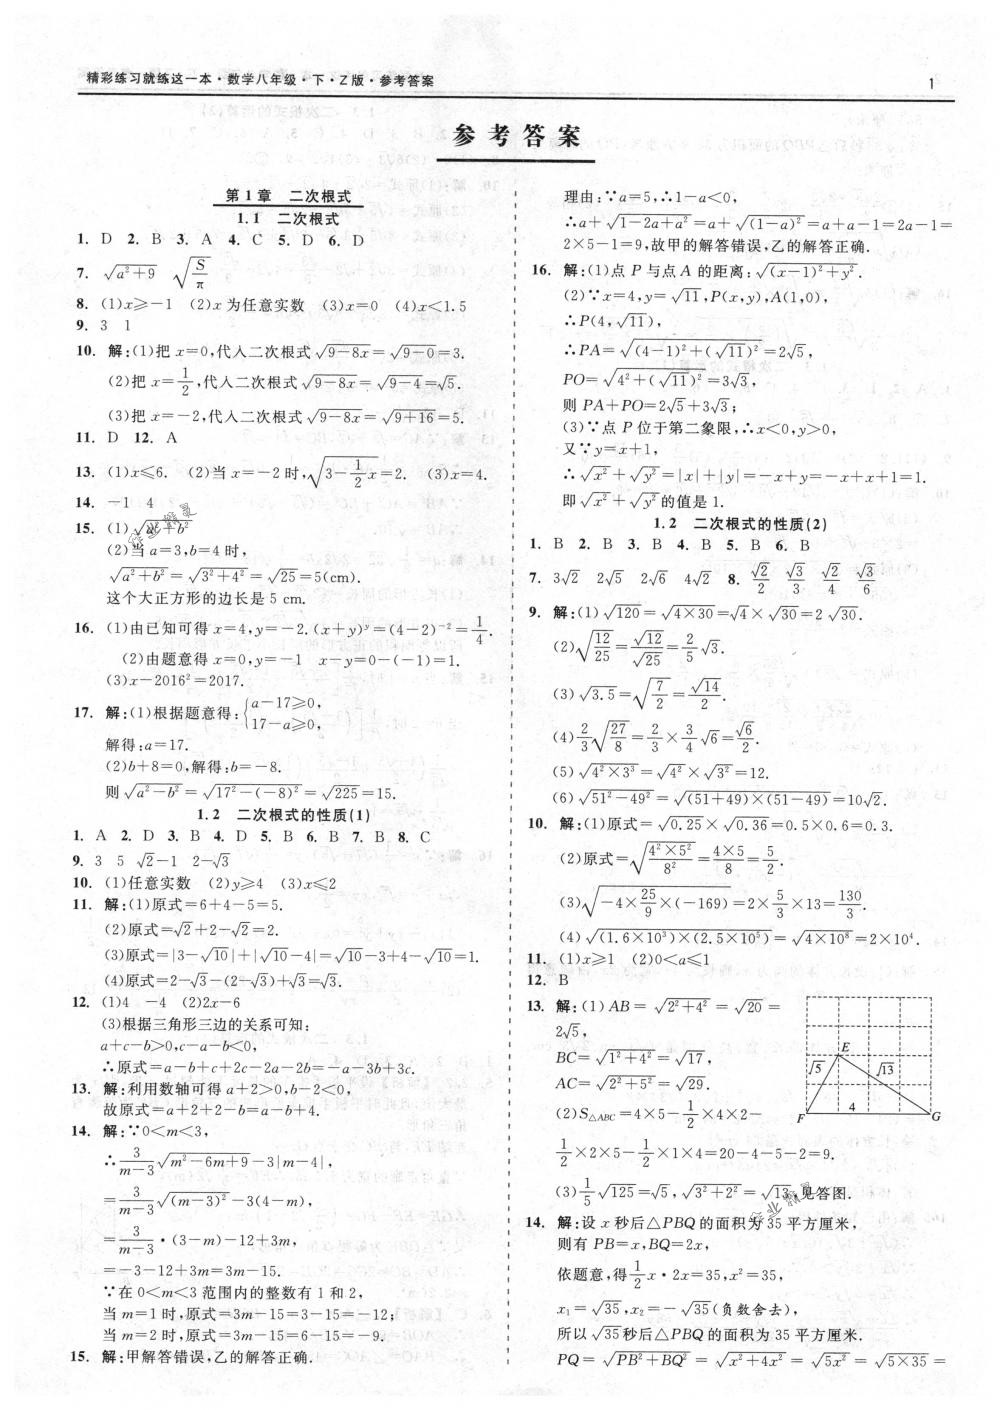 精彩练习就练这一本·数学八年级·下·Z版·参考答案
1
参考答案
第1章 二次根式
1.1 二次根式
1. D 2. B 3. A 4. C 5. D 6. D
7. √(a²+9) √(S/π)
8. (1)x⩾-1 (2)x为任意实数 (3)x=0 (4)x<1.5
9. 3 1
10. 解:(1)把x=0,代入二次根式√(9-8x)=√(9-0)=3.
(2)把x=1/2,代入二次根式√(9-8x)=√(9-4)=√5.
(3)把x=-2,代入二次根式√(9-8x)=√(9+16)=5.
11. D 12. A
13. (1)x⩽6. (2)当x=-2时,√(3-1/2x)=2. (3)x=4.
14. -1 4
15. (1)√(a²+b²)
(2)当a=3,b=4时,
√(a²+b²)=√(3²+4²)=√25=5(cm).
这个大正方形的边长是5 cm.
16. (1)由已知可得x=4,y=-2.(x+y)ʸ=(4-2)⁻²=1/4.
(2)由题意得x=0,y=-1 x-y=0-(-1)=1.
(3)x-2016²=2017.
17. 解:(1)根据题意得:{a-17⩾0,
17-a⩾0,
解得:a=17.
(2)b+8=0,解得:b=-8.
则√(a²-b²)=√(17²-(-8)²)=√225=15.
1.2 二次根式的性质(1)
1. A 2. D 3. B 4. D 5. B 6. B 7. B 8. C
9. 3 5 √2-1 2-√3
10. (1)任意实数 (2)y⩾4 (3)x⩽2
11. 解:(1)原式=6+4-5=5.
(2)原式=√2+2-√2=2.
(3)原式=|3-√10|+|√10-4|=√10-3+4-√10=1.
(4)原式=2-√3-(2-√3)+√3=√3.
12. (1)4 -4 (2)2x-6
(3)根据三角形三边的关系可知:
a+c-b>0,c-a-b<0,
∴原式=a-b+c+2c-2a-2b=-a-3b+3c.
13. 解:利用数轴可得a+2>0,b-2<0,
故原式=a+2+2-b=a-b+4.
14. 解:∵0<m<3,
∴3/(m-3)√(m²-6m+9)-3|m-4|,
=3/(m-3)√((m-3)²)-3(4-m),
=3/(m-3)·(3-m)-12+3m,
=-3-12+3m=3m-15.
∵在0<m<3范围内的整数有1和2,
当m=1时,原式=3m-15=3-15=-12;
当m=2时,原式=3m-15=6-15=-9.
15. 解:甲解答错误,乙的解答正确.
理由:∵a=5,∴1-a<0,
∴a+√(1-2a+a²)=a+√((1-a)²)=a+a-1=2a-1=
2×5-1=9,故甲的解答错误,乙的解答正确.
16. 解:(1)点P与点A的距离:√((x-1)²+y²).
(2)∵x=4,y=√11,P(x,y),A(1,0),
∴P(4,√11),
∴PA=√((4-1)²+(√11)²)=2√5,
PO=√(4²+(√11)²)=3√3,
则PA+PO=2√5+3√3;
(3)∵点P位于第二象限,∴x<0,y>0,
又∵y=x+1,
∴√x²+√y²=|x|+|y|=-x+y=-x+x+1=1.
即√x²+√y²的值是1.
1.2 二次根式的性质(2)
1. B 2. B 3. B 4. B 5. B 6. B
7. 3√2 2√5 2√6 4√2 8. √2/2 √3/3 √2/4 √3/6
9. 解:(1)√120=√(4×30)=√4×√30=2√30.
(2)√(12/25)=√12/√25=2/5√3.
(3)√3.5=√(7/2)=√14/2.
(4)2/3√(27/8)=2/3×3/4√6=√6/2.
(5)√(4²×3³)=√4²×√3²=12.
(6)√(51²-49²)=√((51+49)×(51-49))=10√2.
10. 解:(1)原式=√0.25×√0.36=0.5×0.6=0.3.
(2)原式=√(4²×5²/8²)=4×5/8=5/2.
(3)√(-4×25/9×(-169))=2×5/3×13=130/3.
(4)√((1.6×10³)×(2.5×10⁵))=√(4×10⁸)=2×10⁴.
11. (1)x⩾1 (2)0<a⩽1
12. B
13. 解:(1)AB=√(2²+4²)=√20=
2√5,
BC=√(1²+4²)=√17,
AC=√(2²+5²)=√29.
(2)S△ABC=4×5-1/2×4×2-
1/2×2×5-1/2×1×4=20-4-5-2=9.
(3)1/5√125=√5,√(3²+2²)=√13,见答图.
E
√5 √13
4
F G
14. 解:设x秒后△PBQ的面积为35平方厘米,
则有PB=x,BQ=2x,
依题意,得1/2x·2x=35,x²=35,
x₁=√35,x₂=-√35(负数舍去),
所以√35秒后△PBQ的面积为35平方厘米.
PQ=√(PB²+BQ²)=√(x²+4x²)=√(5x²)=√(5×35)=